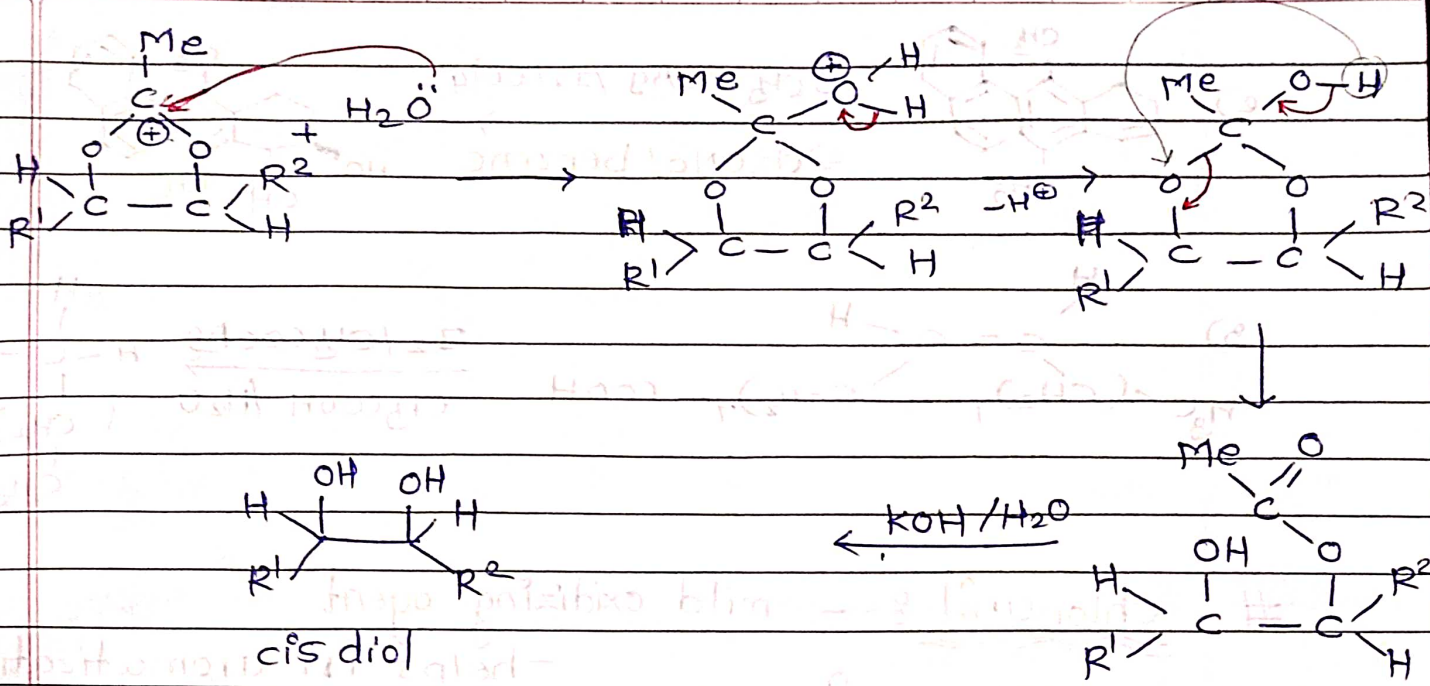 Me
C
⊕
O O
H R²
C — C
R¹ H
+ H₂Ö
Me ⊕ H
O H
C
O O
H R²
C — C
R¹ H
-H⊕
Me O-H
C
O O
H R²
C — C
R¹ H
Me O
C
OH O
H R²
C — C
R¹ H
KOH/H₂O
OH OH
H H
R¹ R²
cis diol